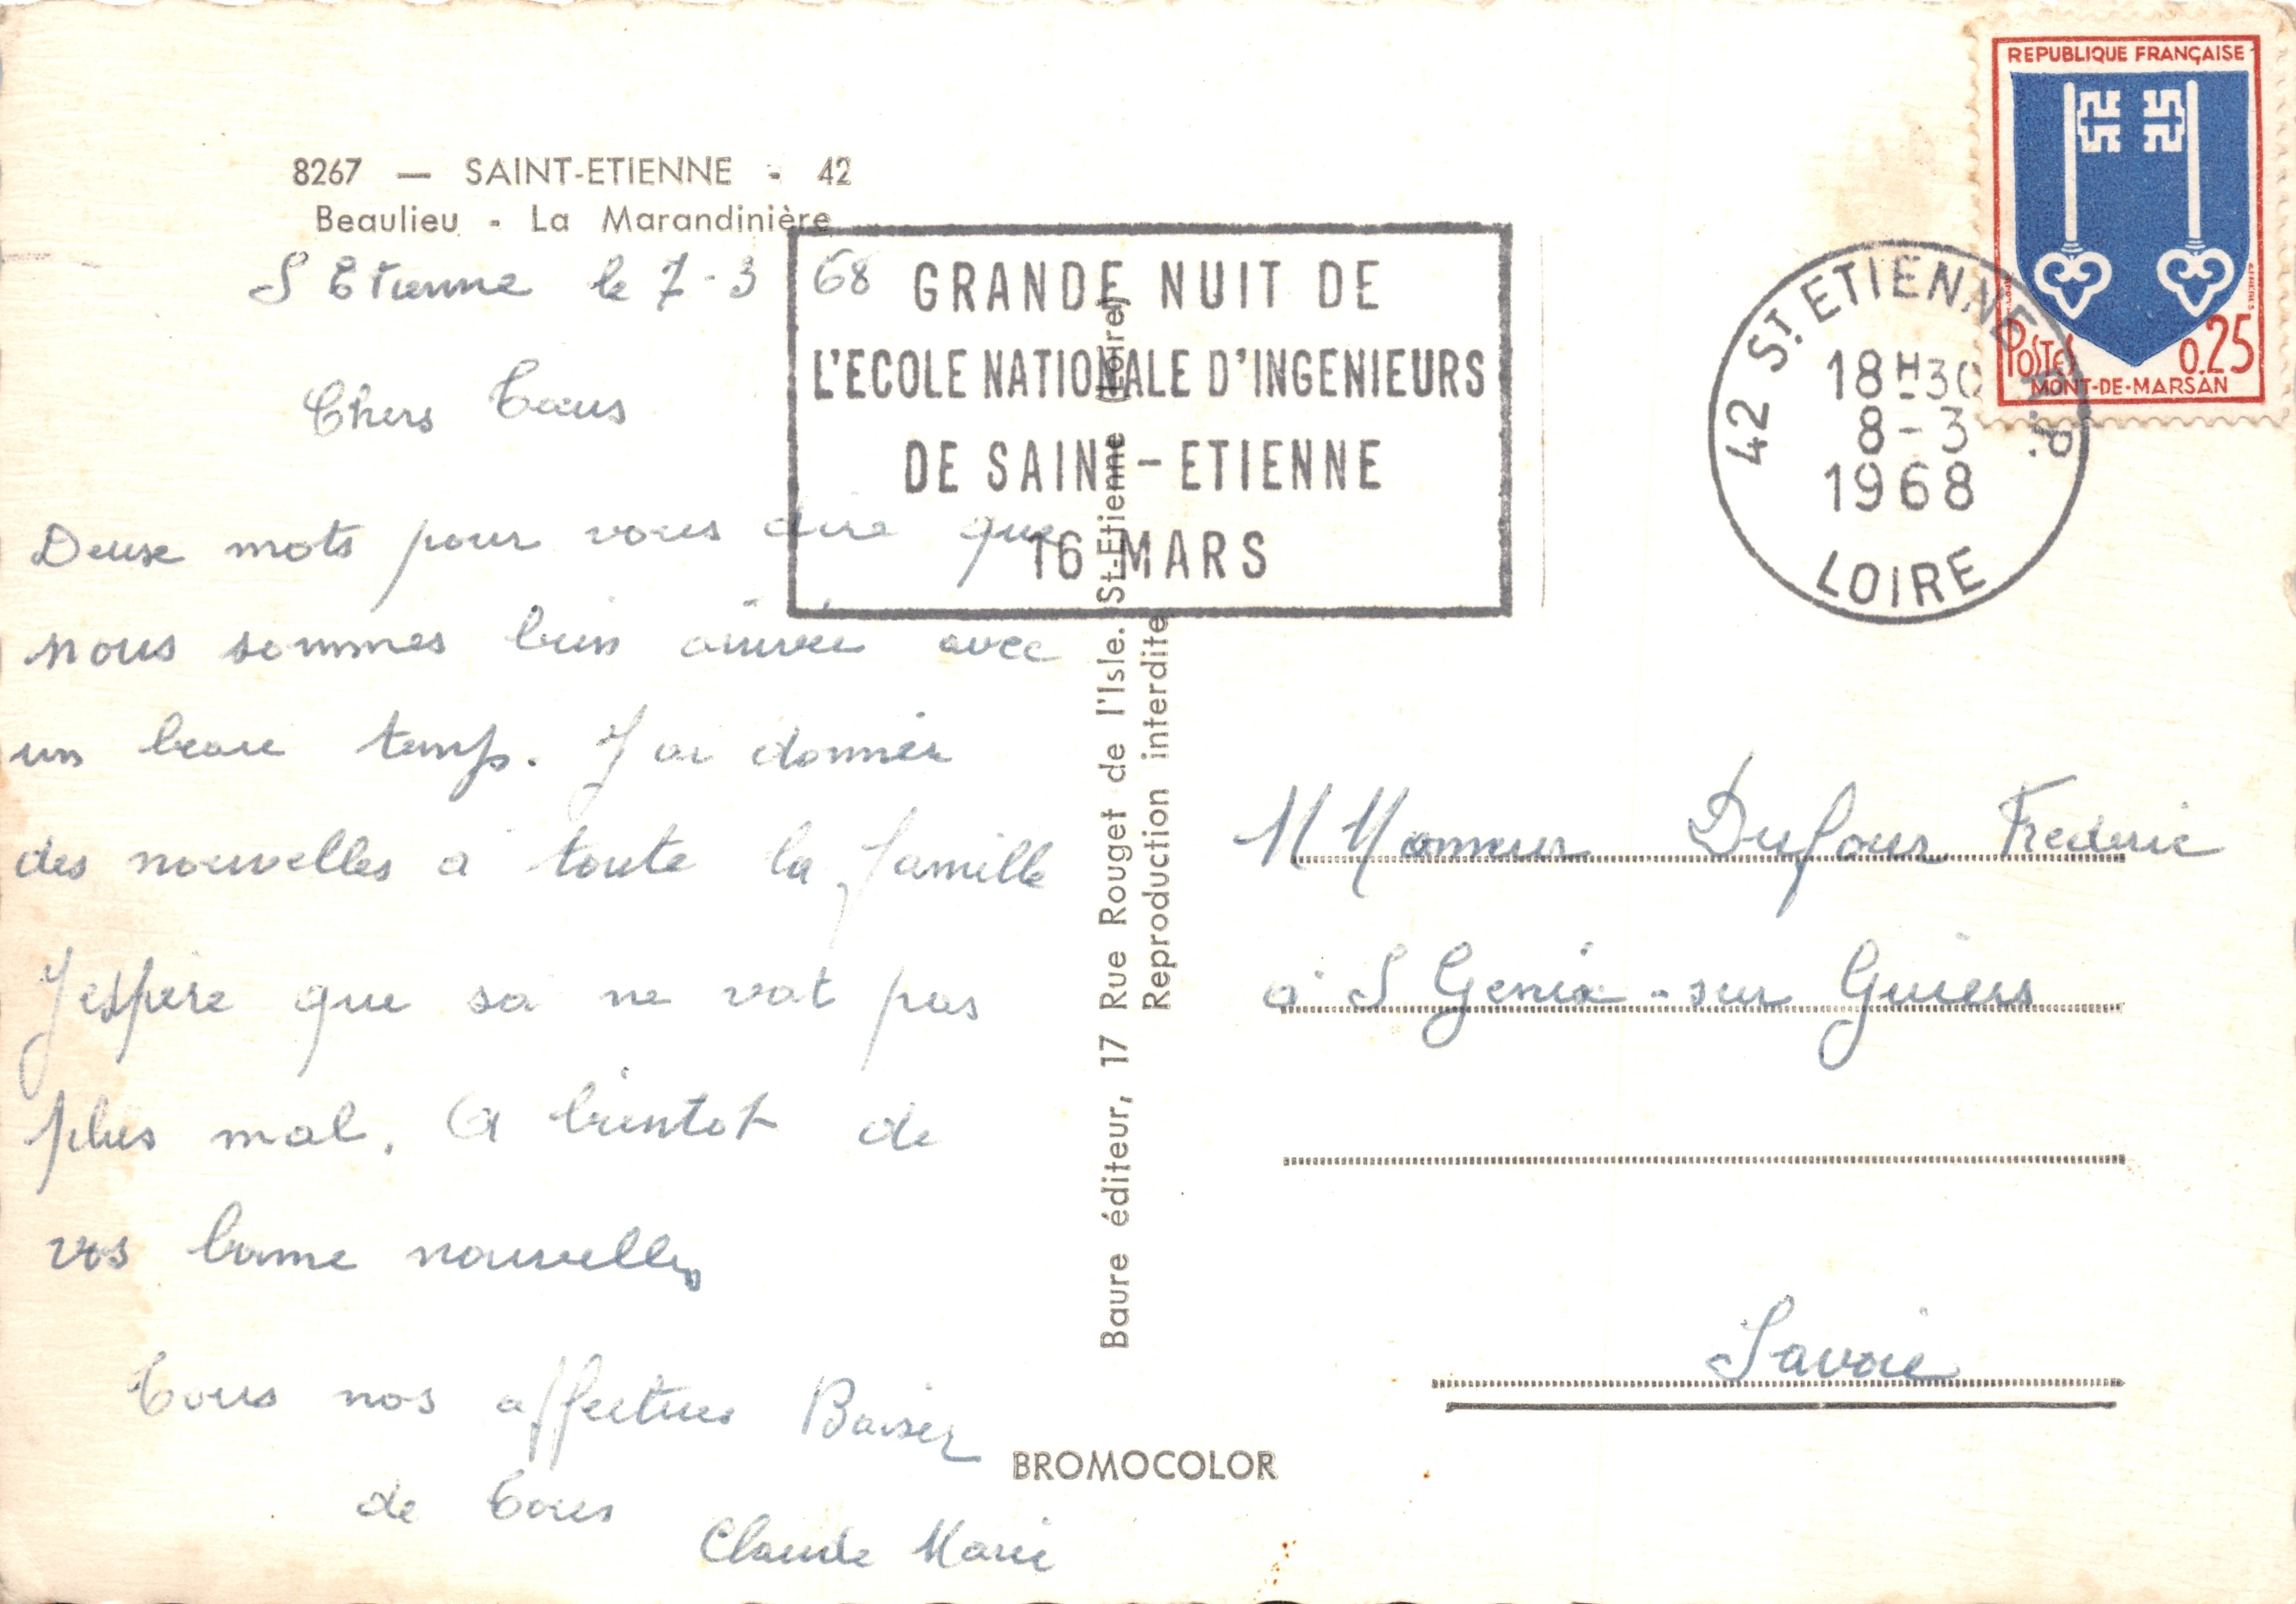 8267 — SAINT-ETIENNE - 42
Beaulieu - La Marandinière
S Etienne le 7-3 68
Chers Tous
Deux mots pour vous dire que
nous sommes bien arrivée avec
un beau temp. J'ai donnér
des nouvelles a toute la famille
J'espère que sa ne vat pas
plus mal. A bientot de
vos bonne nouvelles
Tous nos affectues Baiser
de Tous
Claude Marie
GRANDE NUIT DE
L'ECOLE NATIONALE D'INGENIEURS
DE SAINT-ETIENNE
16 MARS
Baure éditeur, 17 Rue Rouget de l'Isle. St-Etienne (Loire)
Reproduction interdite
BROMOCOLOR
42 ST. ETIENNE R.P.
18H30
8-3
1968
LOIRE
REPUBLIQUE FRANÇAISE
POSTES 0.25
MONT-DE-MARSAN
M Monsieur Dufour Frederic
à S Genix-sur Guiers
Savoie